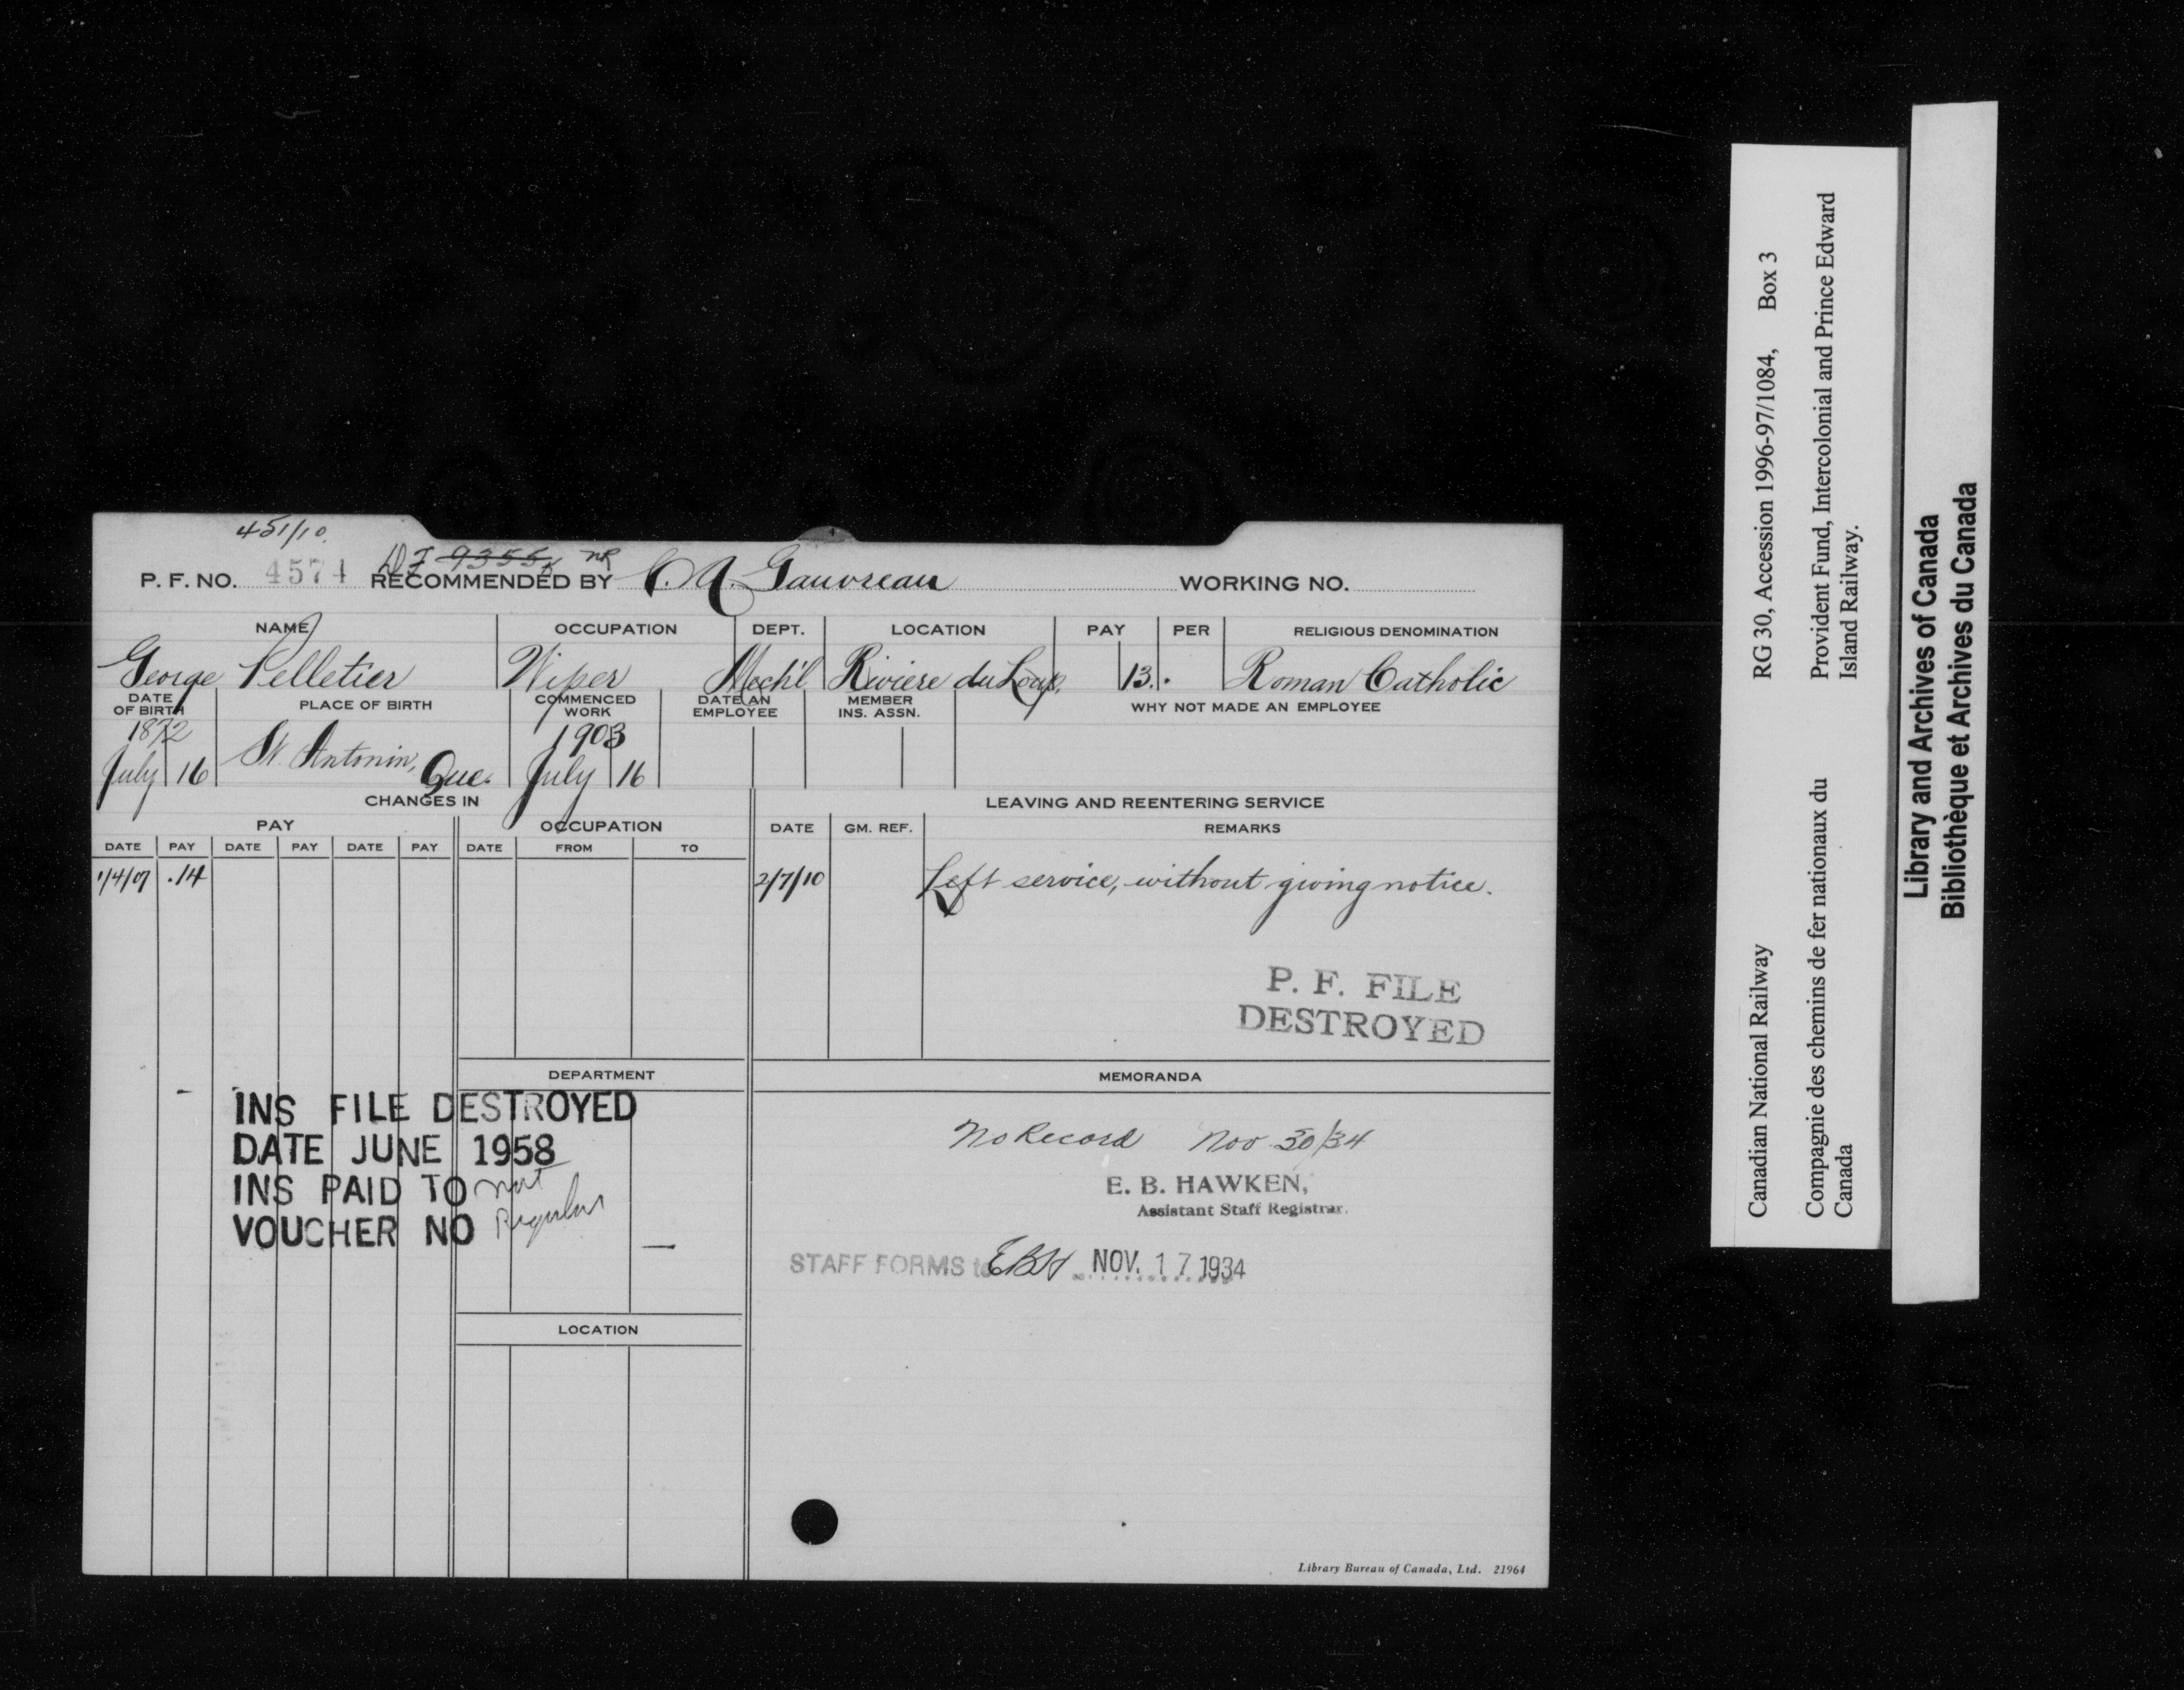 451/10.
P. F. NO. 4574 RECOMMENDED BY C. A. Gauvreau WORKING NO.
9355 NR
NAME OCCUPATION DEPT. LOCATION PAY PER RELIGIOUS DENOMINATION
George Pelletier Wiper Mech'l Riviere du Loup. 13. . Roman Catholic
DATE OF BIRTH PLACE OF BIRTH COMMENCED WORK DATE AN EMPLOYEE MEMBER INS. ASSN. WHY NOT MADE AN EMPLOYEE
1872 1903
July 16 St. Antonin, Que. July 16
CHANGES IN LEAVING AND REENTERING SERVICE
PAY OCCUPATION DATE GM. REF. REMARKS
DATE PAY DATE PAY DATE PAY DATE FROM TO
1/4/07 .14 2/7/10 Left service, without giving notice.
P. F. FILE
DESTROYED
DEPARTMENT MEMORANDA
INS FILE DESTROYED
DATE JUNE 1958
INS PAID TO not
VOUCHER NO Regular
No Record Nov 30/34
E. B. HAWKEN,
Assistant Staff Registrar.
STAFF FORMS to EBH NOV. 17 1934
LOCATION
Library Bureau of Canada, Ltd. 21964
Canadian National Railway RG 30, Accession 1996-97/1084, Box 3
Compagnie des chemins de fer nationaux du
Canada
Provident Fund, Intercolonial and Prince Edward
Island Railway.
Library and Archives of Canada
Bibliothèque et Archives du Canada